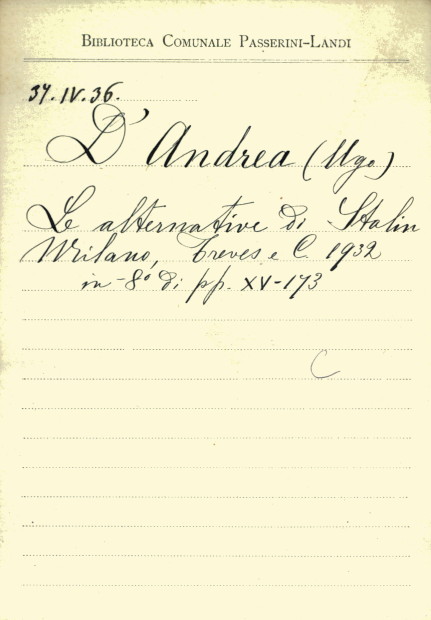 BIBLIOTECA COMUNALE PASSERINI-LANDI
34.IV.36.
D'Andrea (Ugo)
Le alternative di Stalin
Milano, Treves e C. 1932
in-8° di pp. XV-173
C